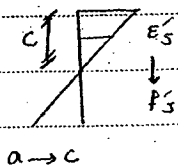 C
ε's
f's
a → c